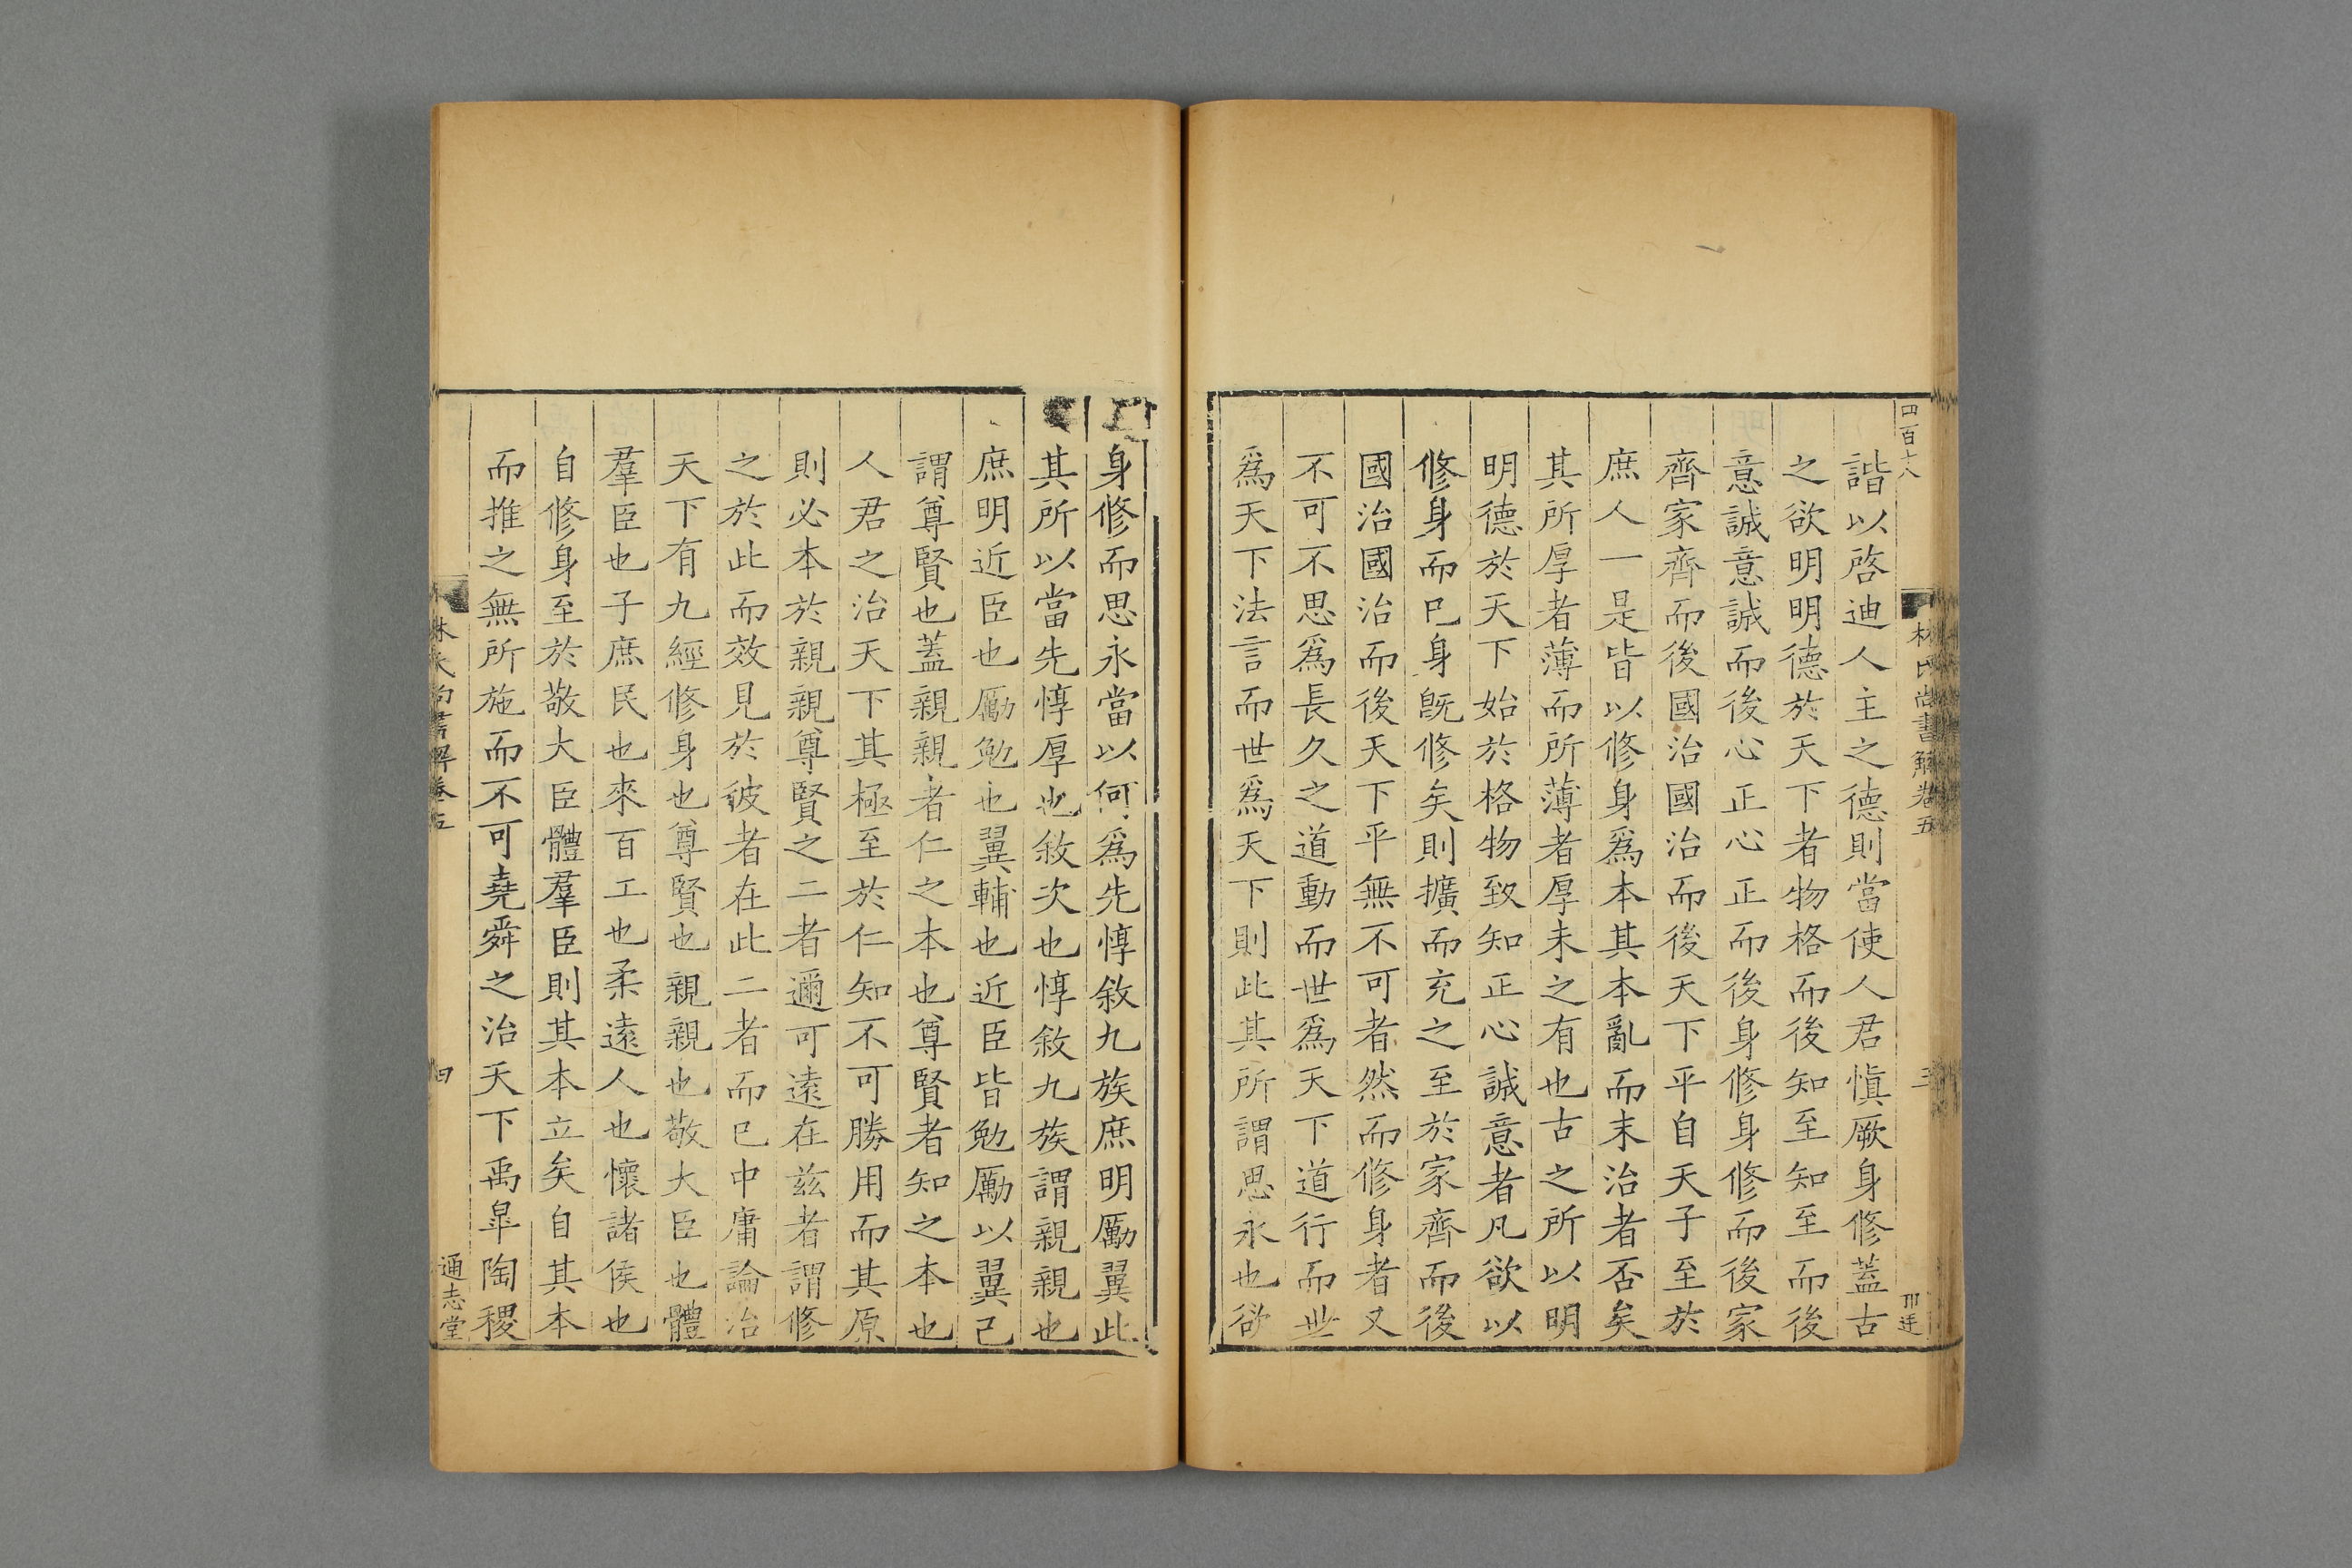 四百十八
林氏尚書解卷五
三
諧以啓迪人主之德則當使人君愼厥身修蓋古
之欲明明德於天下者物格而後知至知至而後
意誠意誠而後心正心正而後身修身修而後家
齊家齊而後國治國治而後天下平自天子至於
庶人一是皆以修身爲本其本亂而末治者否矣
其所厚者薄而所薄者厚未之有也古之所以明
明德於天下始於格物致知正心誠意者凡欲以
修身而已身旣修矣則擴而充之至於家齊而後
國治國治而後天下平無不可者然而修身者又
不可不思爲長久之道動而世爲天下道行而世
爲天下法言而世爲天下則此其所謂思永也欲
身修而思永當以何爲先惇敘九族庶明勵翼此
其所以當先惇厚也敘次也惇敘九族謂親親也
庶明近臣也勵勉也翼輔也近臣皆勉勵以翼己
謂尊賢也蓋親親者仁之本也尊賢者知之本也
人君之治天下其極至於仁知不可勝用而其原
則必本於親親尊賢之二者邇可遠在茲者謂修
之於此而效見於彼者在此二者而已中庸論治
天下有九經修身也尊賢也親親也敬大臣也體
羣臣也子庶民也來百工也柔遠人也懷諸侯也
自修身至於敬大臣體羣臣則其本立矣自其本
而推之無所施而不可堯舜之治天下禹皐陶稷
林氏尚書解卷五
四
通志堂